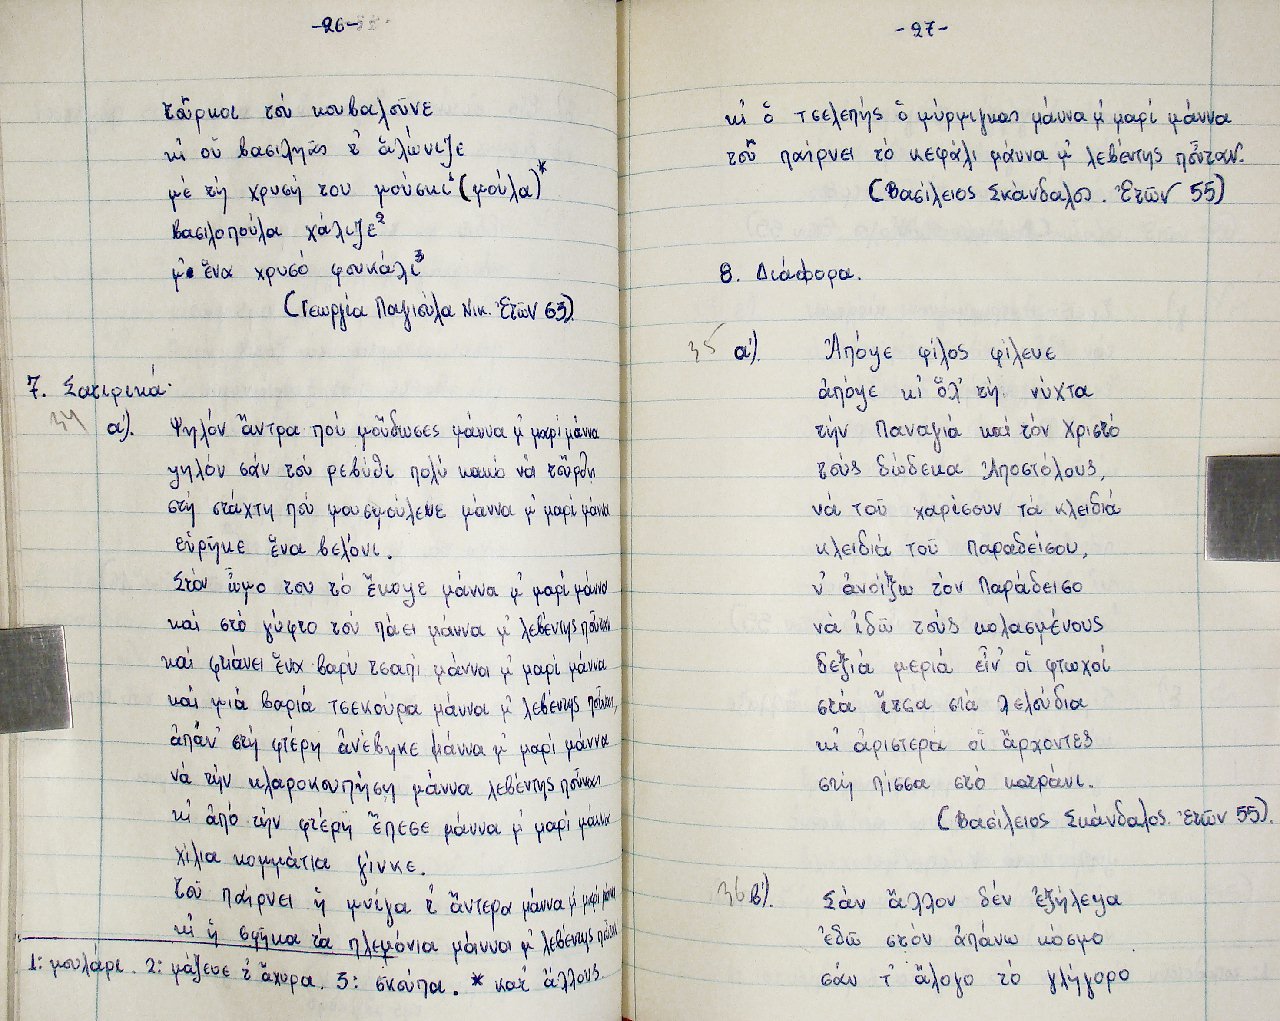 -26-
τοῦρκοι τού κουβαλοῦνε
κι οὑ βασιληᾶς τ' ἁλώνιζε
μέ τή χρυσή του μούσκα¹ (μούλα)*
βασιλοπούλα χάλιζε²
μ' ἕνα χρυσό φουκάλι³
(Γεωργία Παγισύλα Νικ. Ἐτῶν 63)
7. Σατιρικά·
34 α'). Ψηλόν ἄντρα πού μοὔδωσες μάννα μ' μαρί μάννα
ψηλόν σάν τού ρεβύθι πολύ κακό νά τοὔρθη
στή στάχτη πού μουσμούλευε μάννα μ' μαρί μάννα
εὑρῆκε ἕνα βελόνι.
Στόν ὦμο του τό ἔκοψε μάννα μ' μαρί μάννα
καί στό γύφτο τού πάει μάννα μ' λεβέντης ποὖταν
καί φκιάνει ἕνα βαρύ τσαπί μάννα μ' μαρί μάννα
καί μιά βαριά τσεκούρα μάννα μ' λεβέντης ποὖταν,
ἀπάν' στή φτέρη ἀνέβηκε μάννα μ' μαρί μάννα
νά τήν κλαροκουπήση μάννα λεβέντης ποὖταν
κι ἀπό τήν φτέρη ἔπεσε μάννα μ' μαρί μάννα
χίλια κομμάτια γίνκε.
Τού παίρνει ἡ μυίγα τ' ἄντερα μάννα μ' μαρί μάννα
κι ἡ σφῆκα τά πλεμόνια μάννα μ' λεβέντης ποὖταν
1: μουλάρι. 2: μάζευε τ' ἄχυρα. 3: σκούπα. * κατ' ἄλλους.
-27-
κι ὁ τσελεπής ὁ μύρμιγκας μάννα μ' μαρί μάννα
τοῦ παίρνει τό κεφάλι μάννα μ' λεβέντης ποὖταν.
(Βασίλειος Σκάνδαλος. Ἐτῶν 55)
8. Διάφορα.
35 α'). Ἀπόψε φίλος φίλευε
ἀπόψε κι ὅλ' τή νύχτα
τήν Παναγιά καί τόν Χριστό
τούς δώδεκα Ἀποστόλους,
νά τοῦ χαρίσουν τά κλειδιά
κλειδιά τοῦ Παραδείσου,
ν' ἀνοίξω τόν Παράδεισο
νά ἰδῶ τούς κολασμένους
δεξιά μεριά εἶν' οἱ φτωχοί
στά ἴτσα στά λελούδια
κι ἀριστερά οἱ ἄρχοντες
στή πίσσα στό κατράνι.
(Βασίλειος Σκάνδαλος. Ἐτῶν 55).
36 β'). Σάν ἄλλον δέν ἐζήλεψα
ἐδῶ στόν ἀπάνω κόσμο
σάν τ' ἄλογο τό γλήγορο